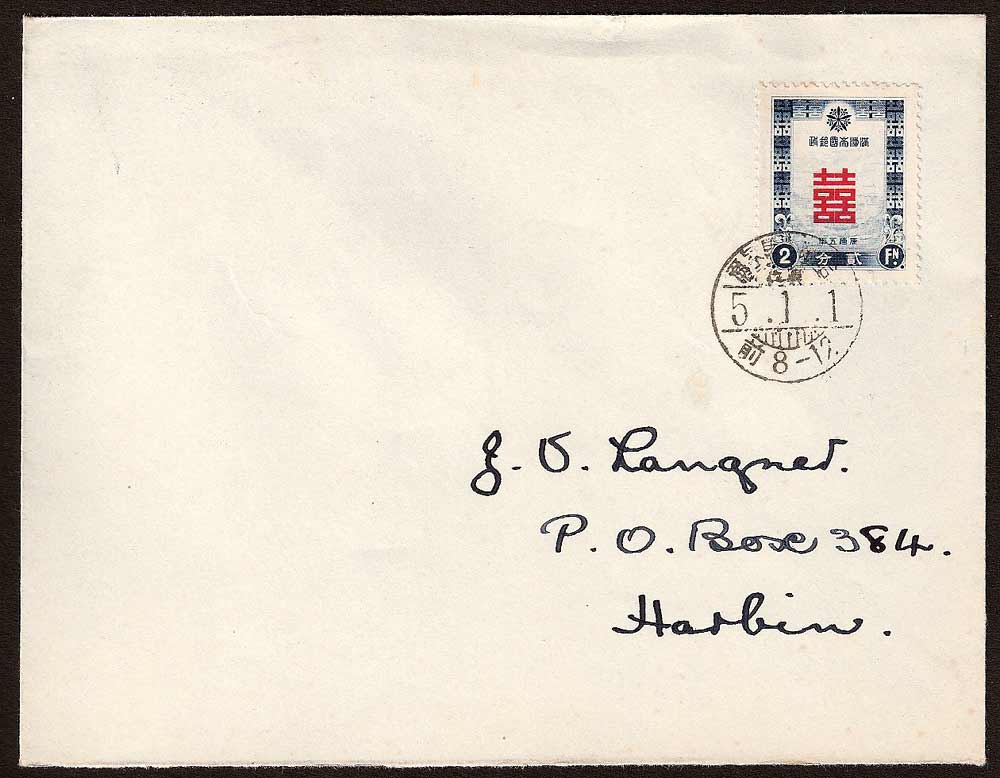 滿洲帝國郵政
囍
康德五年
2 貳分 FN.
5.1.1
前8-12
J. V. Langner.
P. O. Box 384.
Harbin.